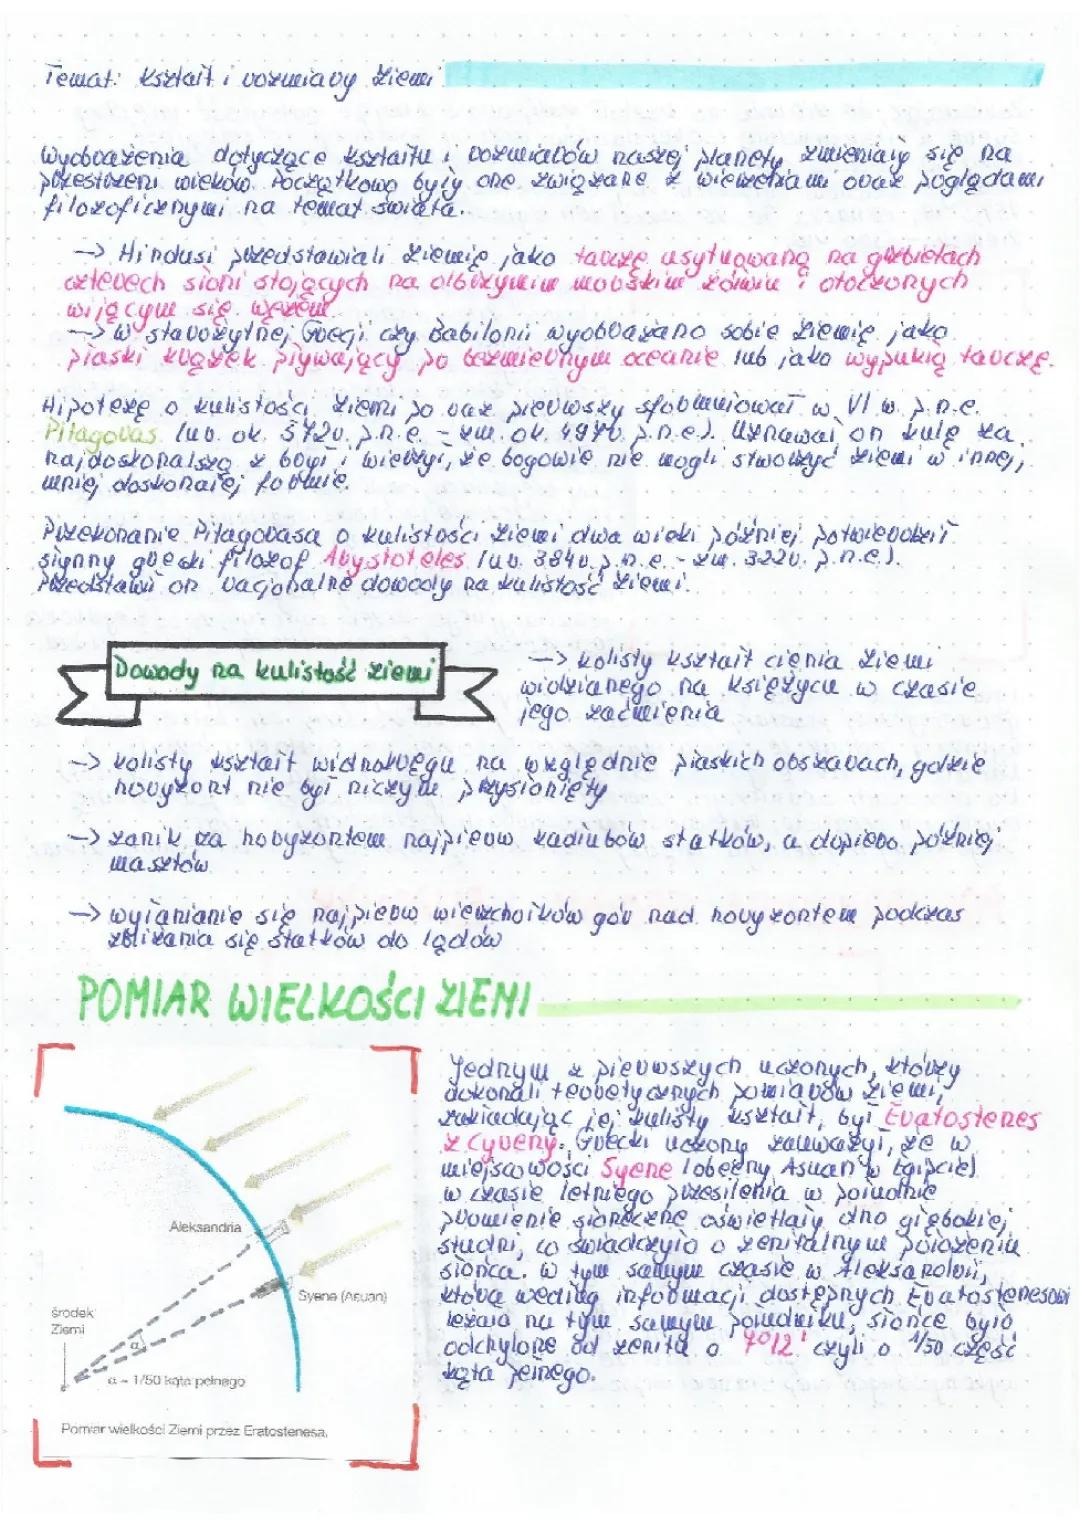 Temat: Kształt i rozmiary Ziemi
Wyobrażenia dotyczące kształtu i rozmiarów naszej planety zmieniały się na
przestrzeni wieków. Początkowo były one związane z wierzeniami oraz poglądami
filozoficznymi na temat świata.
→ Hindusi przedstawiali Ziemię jako tarczę usytuowaną na grzbietach
czterech słoni stojących na olbrzymim morskim żółwiu i otoczonych
wijącym się wężem.
→ w starożytnej Grecji czy Babilonii wyobrażano sobie Ziemię jako
płaski krążek pływający po bezmiernym oceanie lub jako wypukłą tarczę.
Hipotezę o kulistości Ziemi po raz pierwszy sformułował w VI w. p.n.e.
Pitagoras (ur. ok. 572r. p.n.e. - zm. ok. 497r. p.n.e.). Uznawał on kulę za
najdoskonalszą z brył i wierzył, że bogowie nie mogli stworzyć Ziemi w innej,
mniej doskonałej formie.
Przekonanie Pitagorasa o kulistości Ziemi dwa wieki później potwierdził
słynny grecki filozof Arystoteles (ur. 384r. p.n.e. - zm. 322r. p.n.e.).
Przedstawił on racjonalne dowody na kulistość Ziemi.
Dowody na kulistość Ziemi
→ kolisty kształt cienia Ziemi
widzianego na Księżycu w czasie
jego zaćmienia
→ kolisty kształt widnokręgu na względnie płaskich obszarach, gdzie
horyzont nie był niczym przysłonięty
→ zanik za horyzontem najpierw kadłubów statków, a dopiero później
masztów
→ wyłanianie się najpierw wierzchołków gór nad horyzontem podczas
zbliżania się statków do lądów
POMIAR WIELKOŚCI ZIEMI
Jednym z pierwszych uczonych, którzy
dokonali teoretycznych pomiarów Ziemi,
zakładając jej kulisty kształt, był Eratostenes
z Cyreny. Grecki uczony zauważył, że w
miejscowości Syene (obecny Asuan w Egipcie)
w czasie letniego przesilenia w południe
promienie słoneczne oświetlały dno głębokiej
studni, co świadczyło o zenitalnym położeniu
słońca. W tym samym czasie w Aleksandrii,
która według informacji dostępnych Eratostenesowi
leżała na tym samym południku, słońce było
odchylone od zenitu o 7°12' czyli o 1/50 część
kąta pełnego.
Aleksandria
Syene (Asuan)
środek
Ziemi
α
α - 1/50 kąta pełnego
Pomiar wielkości Ziemi przez Eratostenesa.